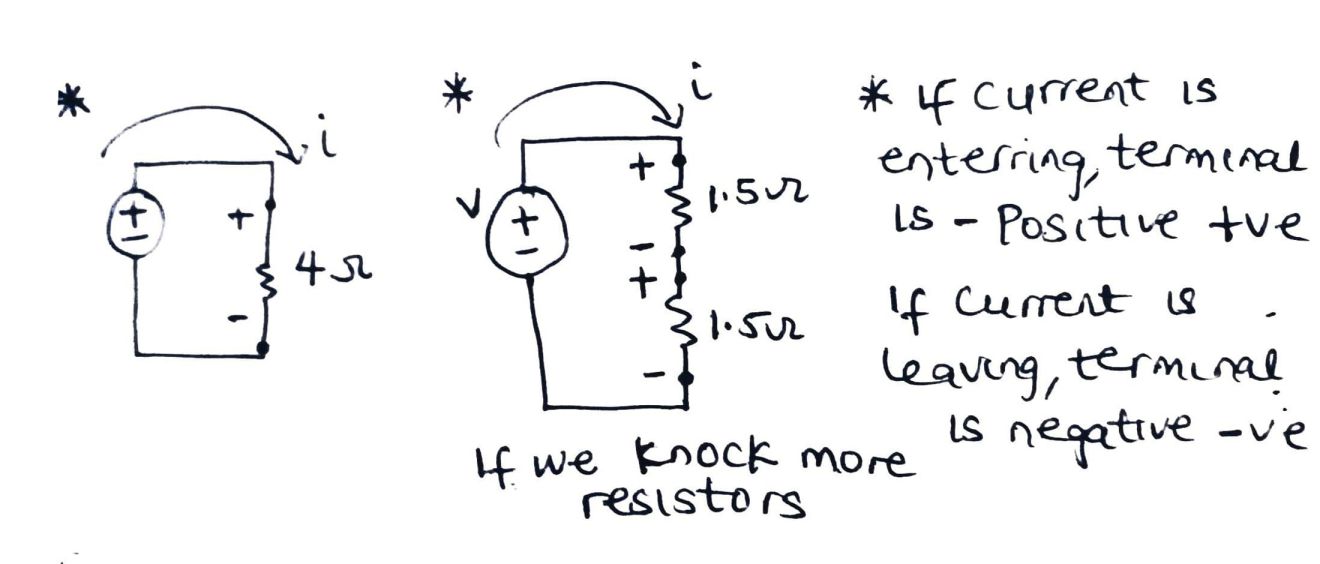 * i
+
-
+
-
4Ω
* i
V
+
-
+
-
1.5Ω
+
-
1.5Ω
If we knock more
resistors
* If current is
enterring, terminal
is - Positive +ve
If current is
leaving, terminal
is negative -ve